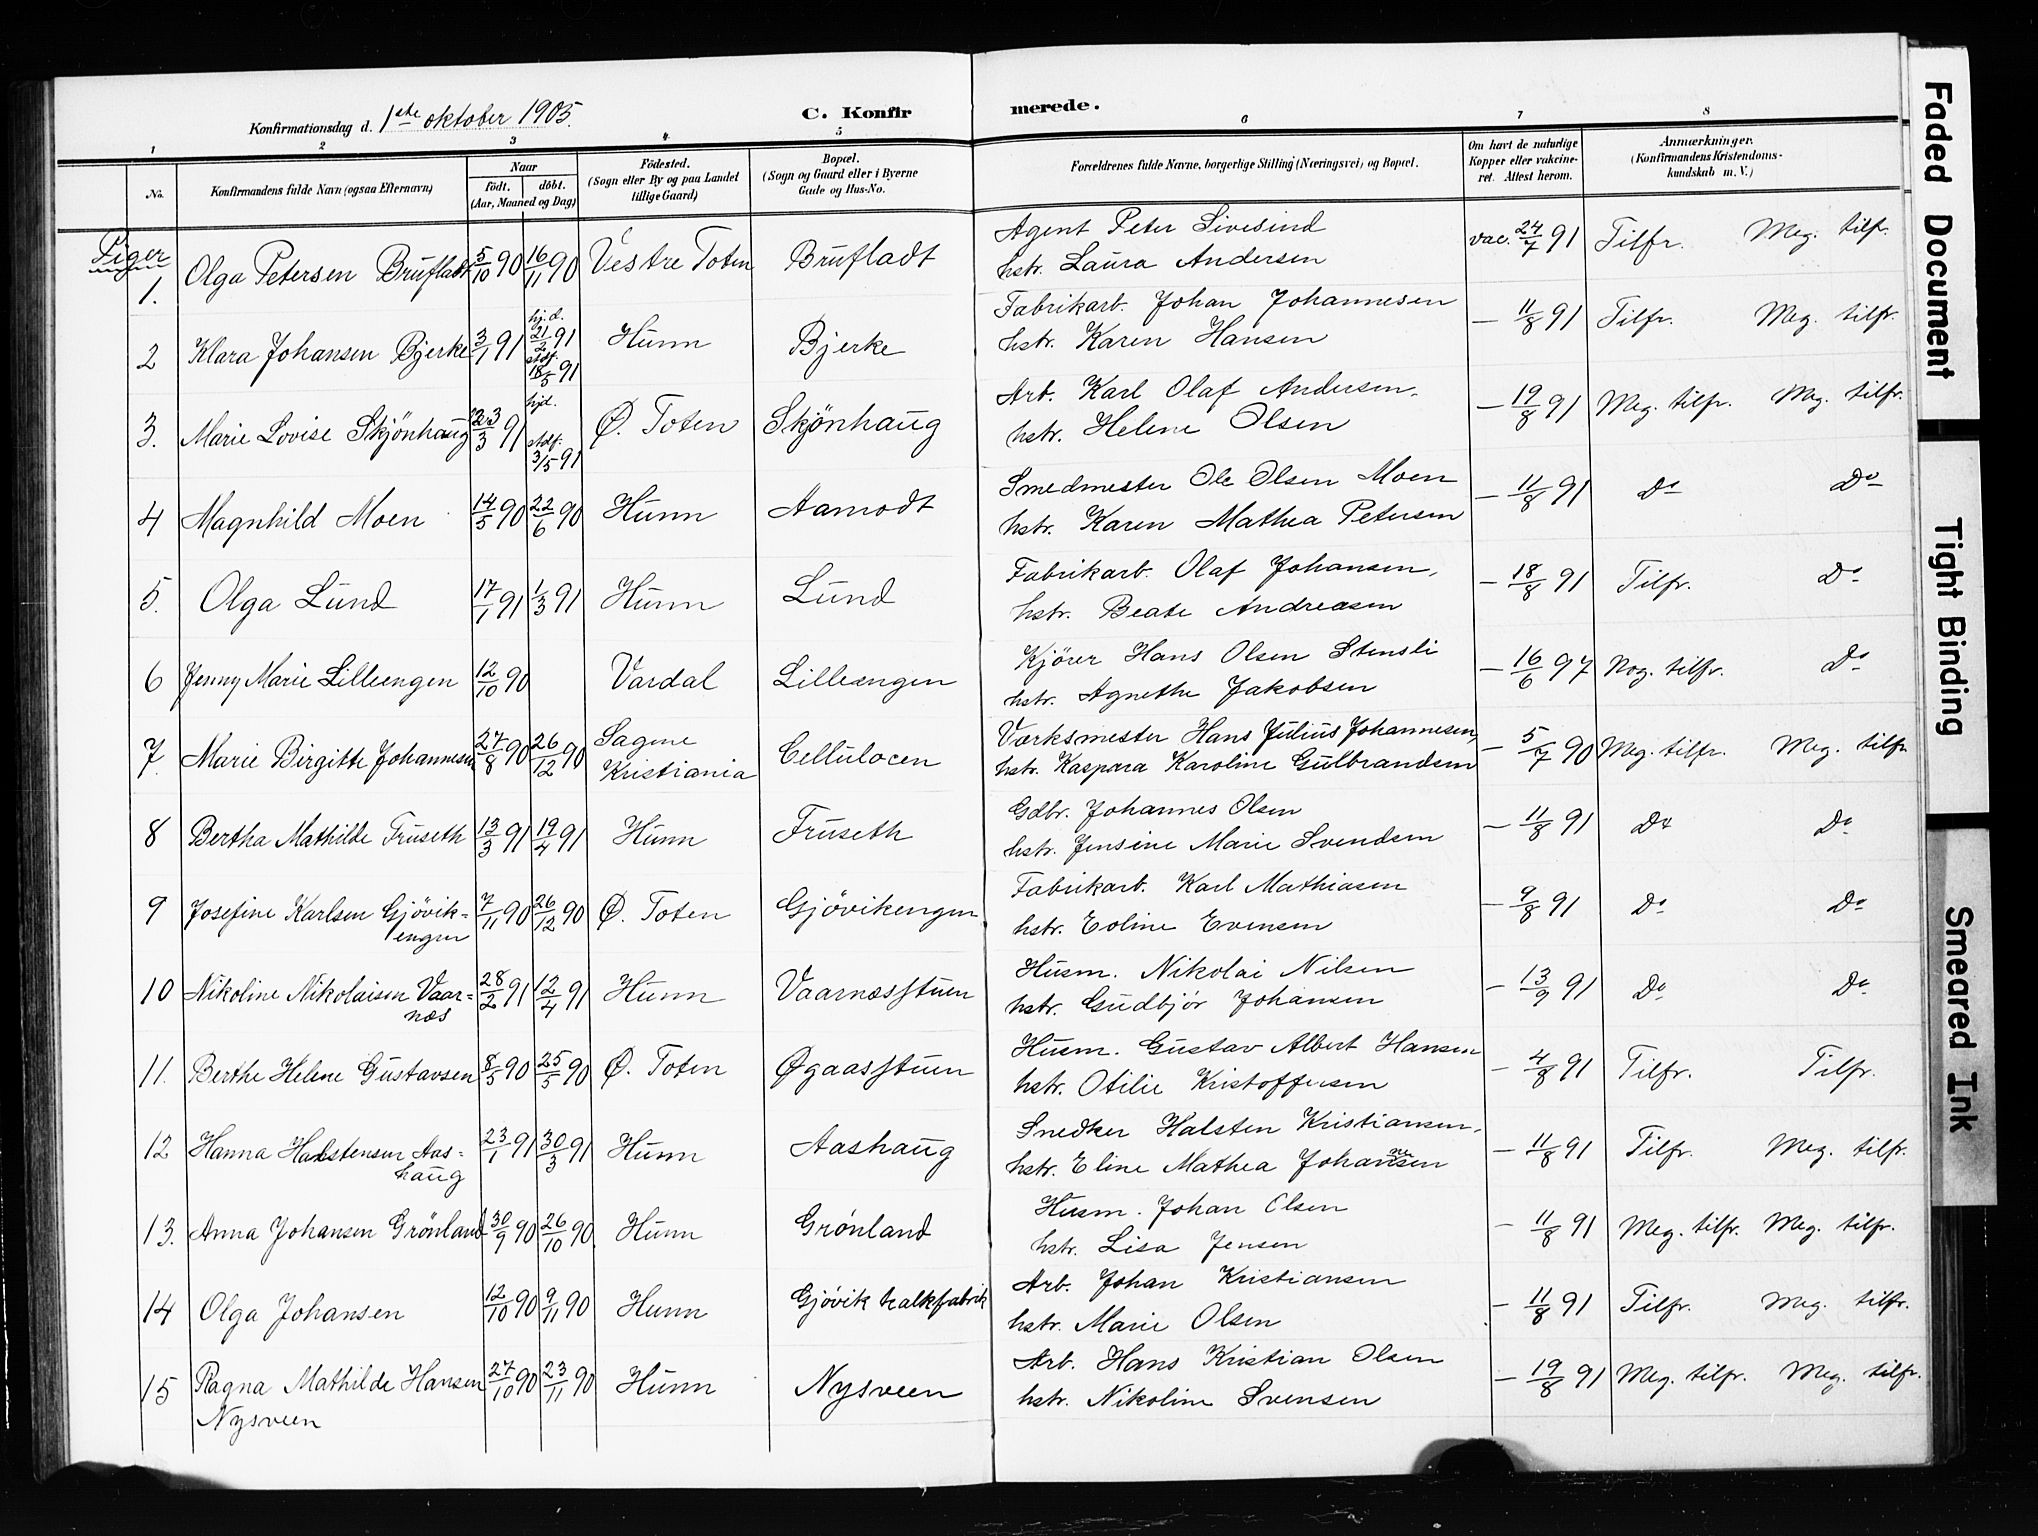 Konfirmationsdag d. 1ste oktober 1905.
C. Konfirmerede.
1 2 3 4 5 6 7 8
No.
Konfirmandens fulde Navn (ogsaa Efternavn)
Naar
födt. döbt.
(Aar, Maaned og Dag)
Födested.
(Sogn eller By og paa Landet
tillige Gaard)
Bopæl.
(Sogn og Gaard eller i Byerne
Gade og Hus-No.
Forældrenes fulde Navne, borgerlige Stilling (Næringsvei) og Bopæl.
Om havt de naturlige
Kopper eller vakcine-
ret. Attest herom.
Anmærkninger.
(Konfirmandens Kristendoms-
kundskab m. V.)
Piger
1. Olga Petersen Brufladt 5/10 90 16/11 90 Vestre Toten Brufladt Agent Peter Sivesind
hstr. Laura Andersen vac. 24/7 91 Tilfr. Meg. tilfr.
2 Klara Johansen Bjerke 3/1 91 hj.d. 21/2 91 Stdf. 18/5 91 Hunn Bjerke Fabrikarb. Johan Johannesen
hstr. Karen Hansen — 11/8 91 Tilfr. Meg. tilfr.
3. Marie Lovise Skjönhaug 23/3 91 hjd. Stdf. 3/5 91 Ø. Toten Skjönhaug Arb. Karl Olaf Andersen,
hstr. Helene Olsen — 19/8 91 Meg. tilfr. Meg. tilfr.
4 Magnhild Moen 14/5 90 22/6 90 Hunn Aamodt Smedmester Ole Olsen Moen
hstr. Karen Mathea Petersen — 11/8 91 Do Do
5. Olga Lund 17/1 91 1/3 91 Hunn Lund Fabrikarb. Olaf Johansen,
hstr. Beate Andreasen — 18/8 91 Tilfr. Do
6 Jenny Marie Lilleengen 12/10 90 Vardal Lilleengen Kjörer Hans Olsen Stensli
hstr. Agnethe Jakobsen — 16/6 97 Nog. tilfr. Do
7. Marie Birgitte Johannesen 27/8 90 26/12 90 Sagene
Kristiania Cellulocen Værksmester Hans Julius Johannesen,
hstr. Kaspara Karoline Gulbrandsen — 5/7 90 Meg. tilfr. Meg. tilfr
8 Bertha Mathilde Fruseth 13/3 91 19/4 91 Hunn Fruseth Gdbr. Johannes Olsen
hstr. Jensine Marie Svendsen — 11/8 91 Do Do
9 Josefine Karlsen Gjövik-
engen 7/11 90 26/12 90 Ø. Toten Gjövikengen Fabrikarb. Karl Mathiasen
hstr. Eoline Evensen — 9/8 91 Do Do
10 Nikoline Nikolaisen Vaar-
næs 28/2 91 12/4 91 Hunn Vaarnæsstuen Husm. Nikolai Nilsen
hstr. Gudbjör Johansen — 13/9 91 Do Do
11. Berthe Helene Gustavsen 8/5 90 25/5 90 Ø. Toten Øgaasstuen Husm. Gustav Albert Hansen
hstr. Otilie Kristoffersen — 4/8 91 Tilfr. Tilfr.
12 Hanna Halstensen Aas-
haug 23/1 91 30/3 91 Hunn Aashaug Snedker Halsten Kristiansen,
hstr. Eline Mathea Johansen — 11/8 91 Tilfr. Meg. tilfr.
13. Anna Johansen Grönland 30/9 90 26/10 90 Hunn Grönland Husm. Johan Olsen
hstr. Lisa Jensen — 11/8 91 Meg. tilfr. Meg. tilfr.
14 Olga Johansen 12/10 90 9/11 90 Hunn Gjövik kalkfabrik Arb. Johan Kristiansen
hstr. Marie Olsen — 11/8 91 Tilfr. Meg. tilfr.
15 Ragna Mathilde Hansen
Nysveen 27/10 90 23/11 90 Hunn Nysveen Arb. Hans Kristian Olsen
hstr. Nikoline Svensen — 19/8 91 Meg. tilfr. Meg. tilfr.
Faded Document
Tight Binding
Smeared Ink